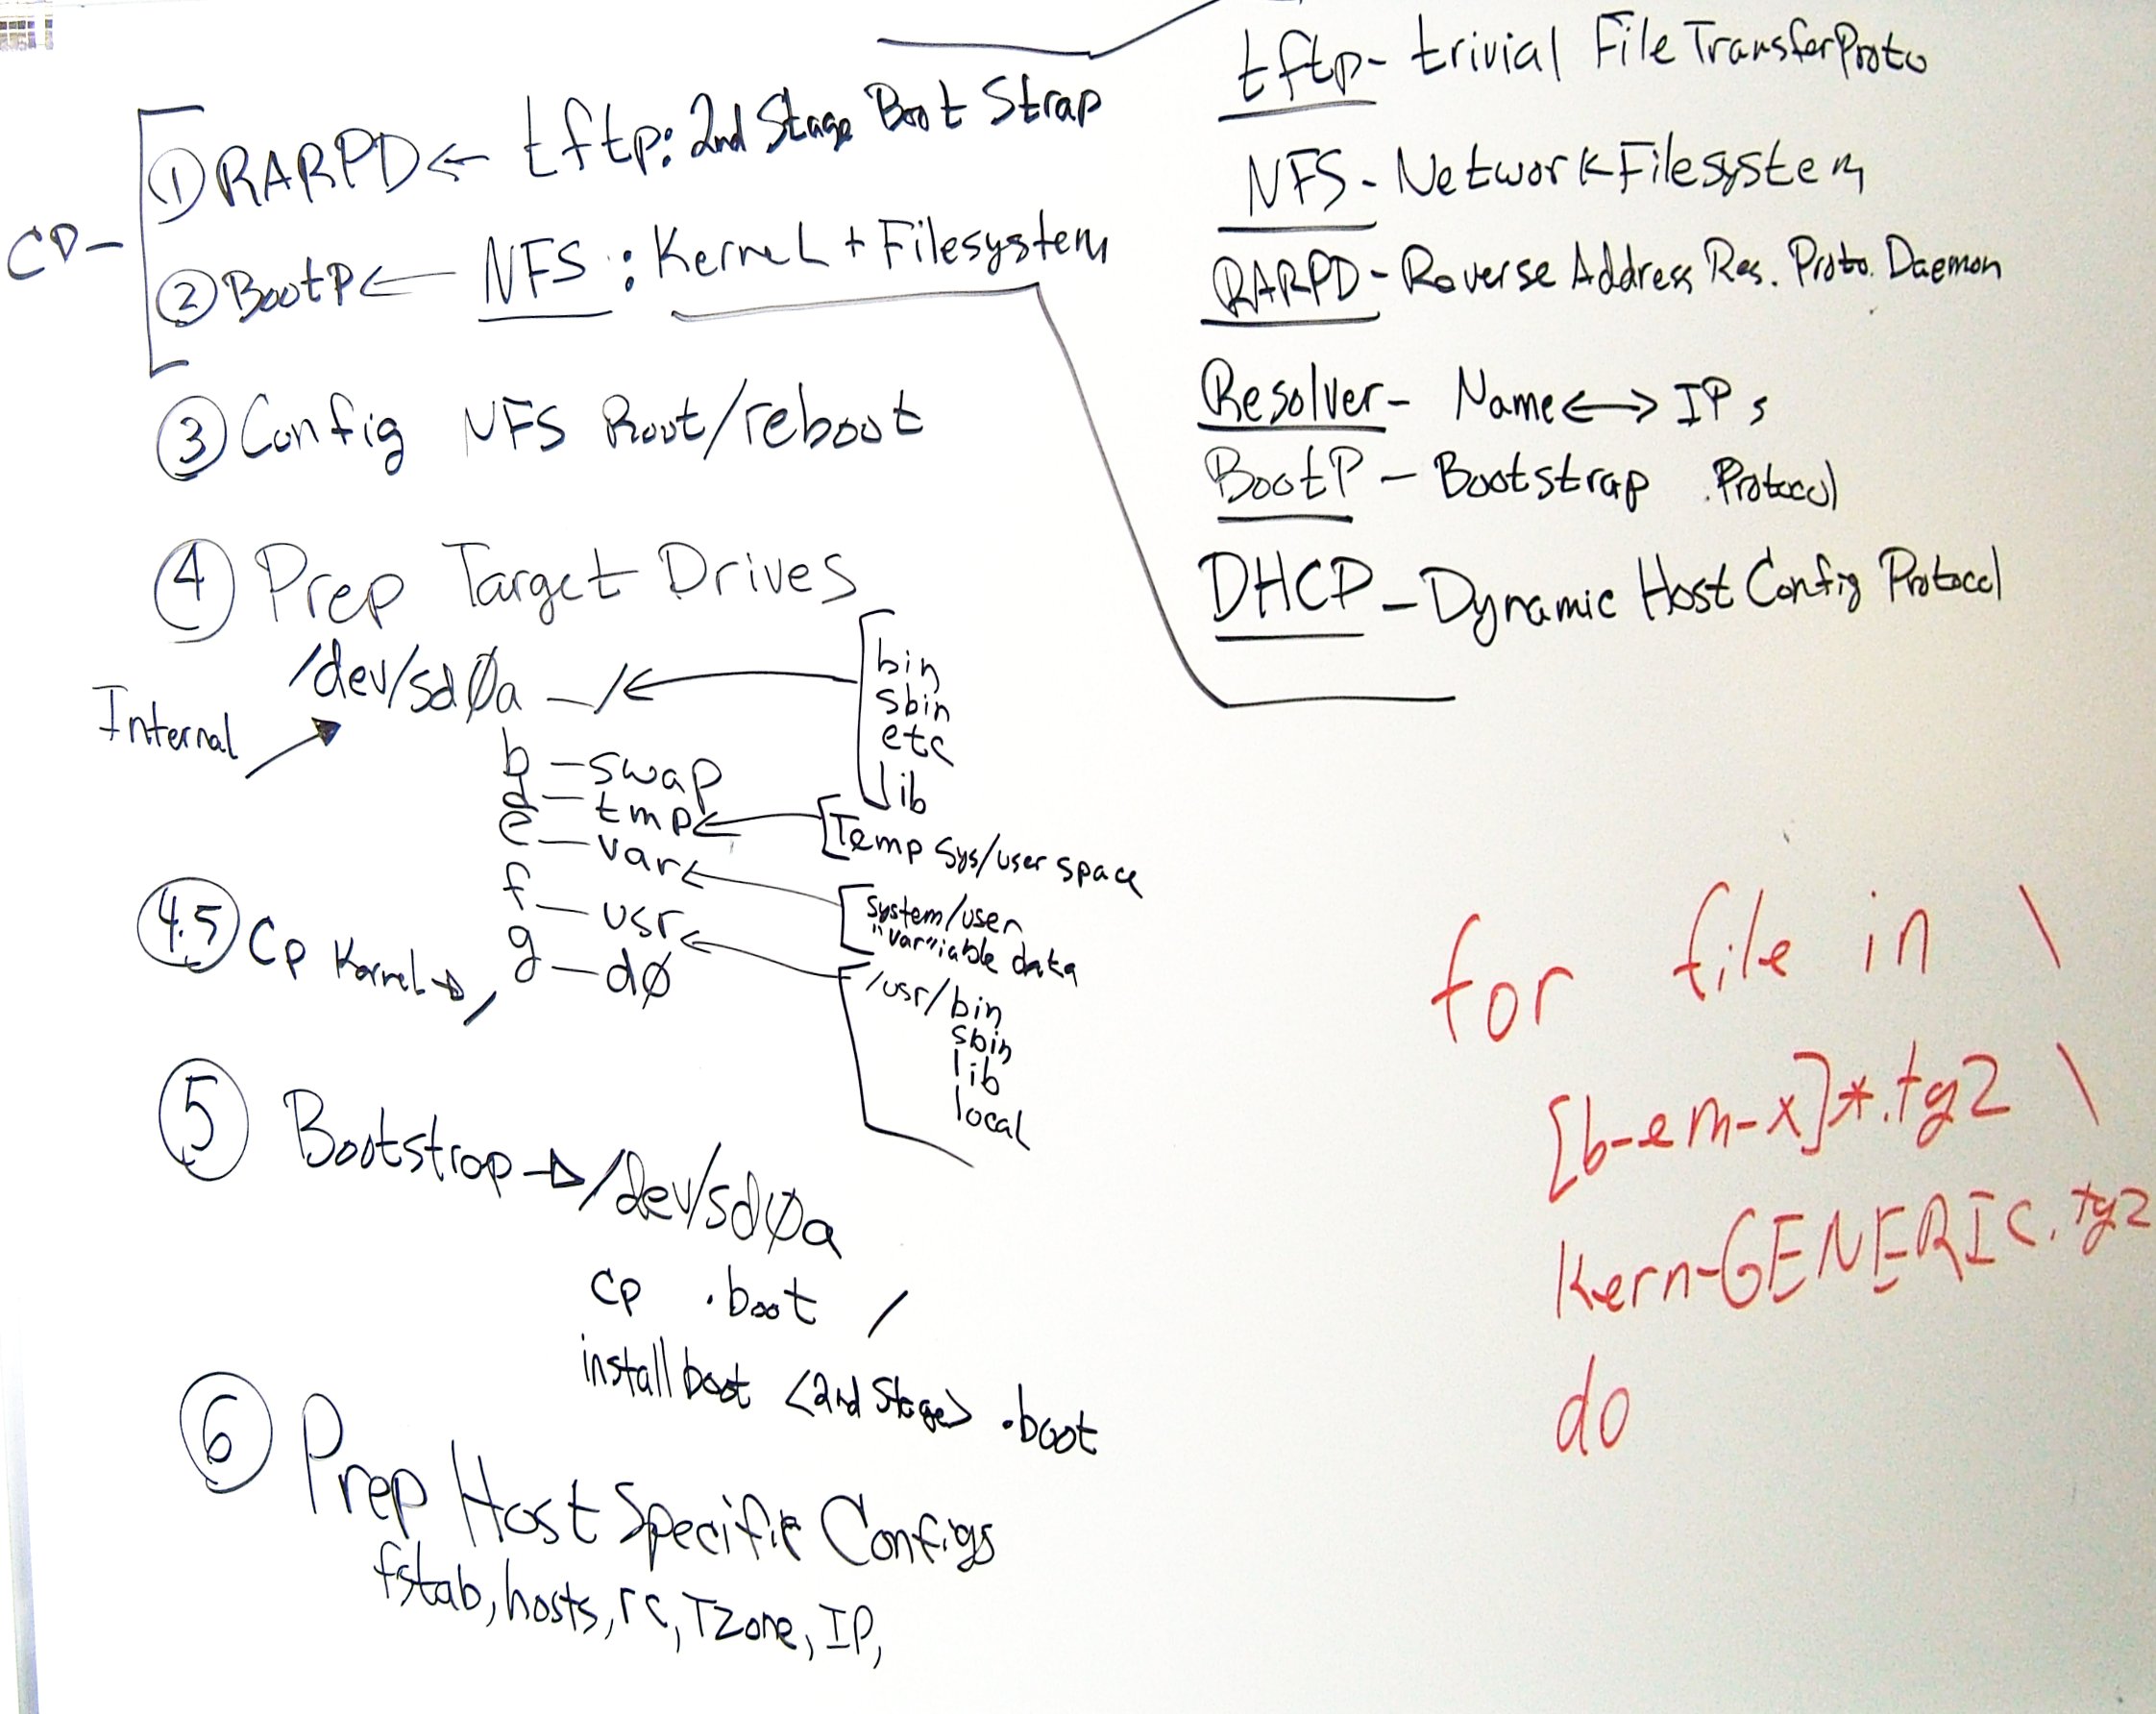 CD-
① RARPD ← tftp: 2nd Stage Boot Strap
② BootP ← NFS: Kernel + Filesystem
③ Config NFS Root/reboot
④ Prep Target Drives
Internal
/dev/sdØa – /
b – swap
d – tmp
e – var
f – usr
g – dØ
bin
sbin
etc
lib
[Temp Sys/user space
System/user
"var"iable data
/usr/bin
sbin
lib
local
4.5 Cp Kernel → /
⑤ Bootstrap → /dev/sdØa
cp .boot /
installboot <2nd Stage> .boot
⑥ Prep Host Specific Configs
fstab, hosts, rc, TZone, IP,
tftp - trivial File Transfer Proto
NFS - Network Filesystem
RARPD - Reverse Address Res. Proto. Daemon
Resolver - Name ↔ IPs
BootP - Bootstrap Protocol
DHCP - Dynamic Host Config Protocol
for file in \
[b-em-x]*.tgz \
kern-GENERIC.tgz
do